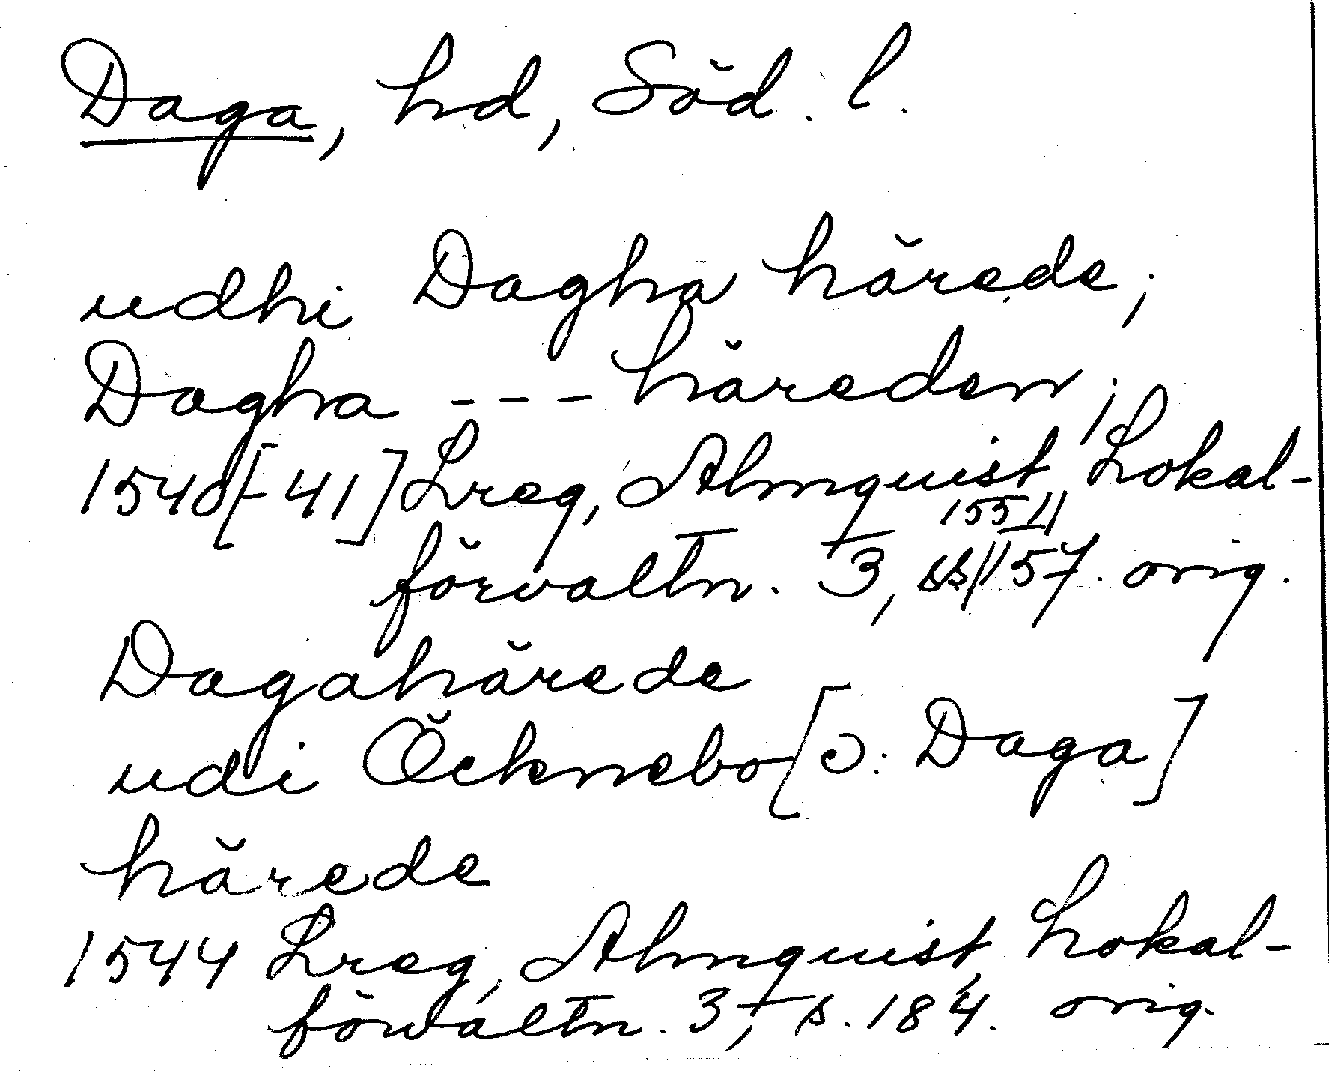 Daga, hd, Söd. l.
udhi Dagha härede;
Dagha --- häreden;
1540[-41] Lreg, Almquist, Lokal-
förvaltn. 3, ss 155, 157. orig.
Dagahärede
udi Öcknebo [ɔ: Daga]
härede
1544 Lreg, Almquist, Lokal-
förvaltn. 3, s. 184. orig.